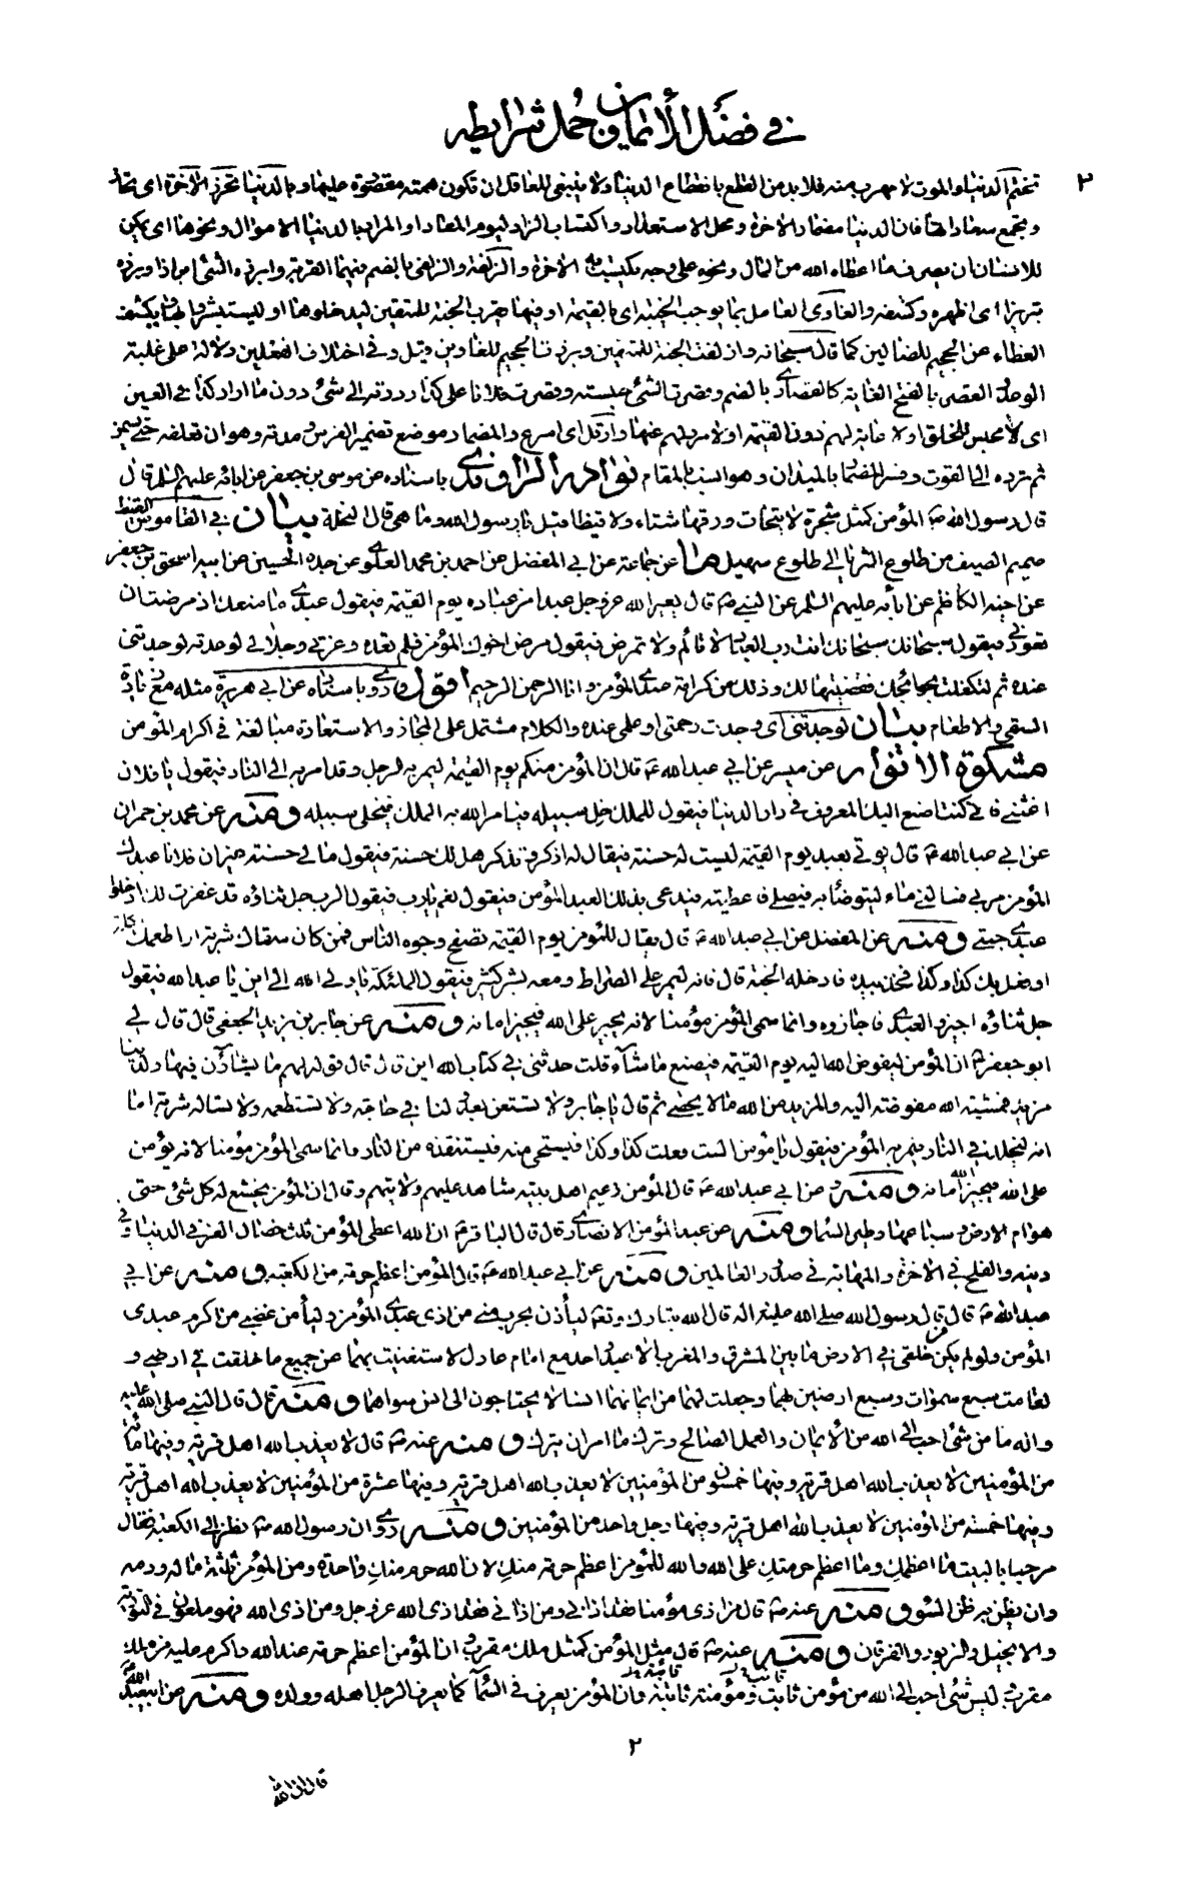 في فضل الأيمان وجمل شرايطه
٢
تختم الدنيا والموت لا مهرب منه فلابد من القطع بانقطاع الدنيا ولا ينبغي للعاقل ان تكون همته مقصورة عليها وبالدنيا تحرز الآخرة اى تحاز
وتجمع سعاداتها فان الدنيا مضمار الاخرة ومحل الاستعداد واكتساب الزاد ليوم المعاد او المراد بالدنيا الاموال ونحوها اى يمكن
للانسان ان يصرف ما اعطاه الله من المال ونحوه على وجه يكتسب به الآخرة والزلفة والزلفى بالضم فيهما القربة وابرزه الشئ ابرازا وبرزه
تبريزا اى اظهره وكشفه والغاوى العامل بما يوجب الخيبة اى بالقيمة او فيها تقرب الجنة للمتقين ليدخلوها او ليستبشروا بها ويكشف
الغطاء عن الجحيم للضالين كما قال سبحانه وازلفت الجنة للمتقين وبرزت الجحيم للغاوين وقيل وفى اختلاف الفعلين دلالة على غلبة
الوعد القصر بالفتح الغاية كالقصارى بالضم وقصرت الشئ حبسته وقصرت فلانا على كذا رددته الى شئ دون ما اراد كذا في العين
اى لا محبس للخلق او لا غاية لهم دون القيمة او لا مرد لهم عنها وارقل اى اسرع والمضمار موضع تضمير الفرس ومدته وهو ان تعلفه حتى يسمن
ثم ترده الى القوت وفسر المضمار بالميدان وهو انسب بالمقام نوادر الراوندى باسناده عن موسى بن جعفر عن ابائه عليهم السلم قال
قال رسول الله ص المؤمن كمثل شجرة لا يتحات ورقها شتاء ولا قيظا قيل يا رسول الله وما هى قال النخلة بيان في القاموس القيظ
صميم الصيف من طلوع الثريا الى طلوع سهيل ما عن جماعة عن ابي المفضل عن احمد بن محمد العلوى عن جده الحسين عن ابيه اسحق بن جعفر
عن اخيه الكاظم عن ابائه عليهم السلم عن النبي ص قال يعير الله عز وجل عبدا من عباده يوم القيمة فيقول عبدى ما منعك اذ مرضت ان
تعودني فيقول سبحانك سبحانك انت رب العباد لا تالم ولا تمرض فيقول مرض اخوك المؤمن فلم تعده وعزتي وجلالي لو عدته لوجدتنى
عنده ثم لتكفلت بحوائجك فقضيتها لك وذلك من كرامة عبدى المؤمن وانا الرحمن الرحيم اقول وروى باسناده عن ابي هريرة مثله مع زيادة
السقي والاطعام بيان لوجدتنى اى وجدت رحمتى او علمى عنده والكلام مشتمل على المجاز والاستعارة مبالغة في اكرام المؤمن
مشكوة الانوار عن ميسر عن ابي عبد الله ع قال ان المؤمن منكم يوم القيمة ليمر به الرجل وقد امر به الى النار فيقول يا فلان
اغثني فاني كنت اصنع اليك المعروف في دار الدنيا فيقول للملك خل سبيله فيامر الله به الملك فيخلى سبيله ومنه عن محمد بن حمران
عن ابي عبد الله ع قال يؤتى بعبد يوم القيمة ليست له حسنة فيقال له اذكر وتذكر هل لك حسنة فيقول مالي حسنة غير ان فلانا عبدك
المؤمن مر بي فسالني ماء ليتوضأ به فيصلى فاعطيته فيدعى بذلك العبد المؤمن فيقول نعم يا رب فيقول الرب جل ثناؤه قد غفرت لك ادخلوا
عبدى جنتي ومنه عن المفضل عن ابي عبد الله ع قال يقال للمؤمن يوم القيمة تصفح وجوه الناس فمن كان سقاك شربة او اطعمك اكلة
او فعل بك كذا وكذا فخذ بيده فادخله الجنة قال فانه ليمر على الصراط ومعه بشر كثير فيقول الملائكة يا ولى الله الى اين يا عبد الله فيقول
جل ثناؤه اجيزوا لعبدى فاجازوه وانما سمى المؤمن مؤمنا لانه يجير على الله فيجيز امانه ومنه عن جابر بن يزيد الجعفى قال قال لي
ابو جعفر ع ان المؤمن ليفوض الله اليه يوم القيمة فيصنع ما شاء قلت حدثنى في كتاب الله اين قال قال قوله لهم ما يشاؤن فيها ولدينا
مزيد فمشيته الله مفوضته اليه والمزيد من الله ما لا يحصى ثم قال يا جابر ولا تستعن بعدو لنا في حاجة ولا تستطعمه ولا تسأله شربة اما
انه ليخلد في النار فيمر به المؤمن فيقول يا مؤمن الست فعلت كذا وكذا فيستحى منه فيستنقذه من النار وانما سمى المؤمن مؤمنا لانه يؤمن
على الله فيجيز الله امانه ومنه عن ابي عبد الله ع قال المؤمن زعيم اهل بيته شاهد عليهم ولايتهم وقال ان المؤمن يخشع له كل شئ حتى
هوام الارض وسباعها وطير السماء ومنه عن عبد المؤمن الانصارى قال قال الباقر ع ان الله اعطى المؤمن ثلث خصال العز في الدنيا وفي
دينه والفلج في الاخرة والمهابة في صدور العالمين ومنه عن ابي عبد الله ع قال المؤمن اعظم حرمة من الكعبة ومنه عن ابي
عبد الله ع قال قال رسول الله صلى الله عليه واله قال الله تبارك وتعالى ليأذن بحرب مني من اذى عبدى المؤمن وليأمن غضبي من اكرم عبدى
المؤمن ولو لم يكن من خلقى في الارض ما بين المشرق والمغرب الا عبد واحد مع امام عادل لاستغنيت بهما عن جميع ما خلقت في ارضي و
لقامت سبع سموات وسبع ارضين بهما وجعلت لهما من ايمانهما انسا لا يحتاجون الى انس سواهما ومنه قال قال النبي صلى الله عليه
واله ما من شئ احب الى الله من الأيمان والعمل الصالح وترك ما امر ان يترك ومنه عنه ص قال لا يعذب الله اهل قرية وفيها مائة
من المؤمنين لا يعذب الله اهل قرية وفيها خمسون من المؤمنين لا يعذب الله اهل قرية وفيها عشرة من المؤمنين لا يعذب الله اهل قرية
وفيها خمسة من المؤمنين لا يعذب الله اهل قرية وفيها رجل واحد من المؤمنين ومنه روى ان رسول الله ص نظر الى الكعبة فقال
مرحبا بالبيت ما اعظمك وما اعظم حرمتك على الله والله للمؤمن اعظم حرمة منك لان الله حرم منك واحدة ومن المؤمن ثلثة ماله ودمه
وان يظن به ظن السوء ومنه عنه ص قال من اذى مؤمنا فقد اذاني ومن اذاني فقد اذى الله عز وجل ومن اذى الله فهو ملعون في التورية
والانجيل والزبور والفرقان ومنه عنه ص قال مثل المؤمن كمثل ملك مقرب وان المؤمن اعظم حرمة عند الله واكرم عليه من ملك
مقرب وليس شئ احب الى الله من مؤمن تائب ومؤمنة تائبة وان المؤمن يعرف في السماء كما يعرف الرجل اهله وولده ومنه عن ابي عبد الله
٢
قال ان الله